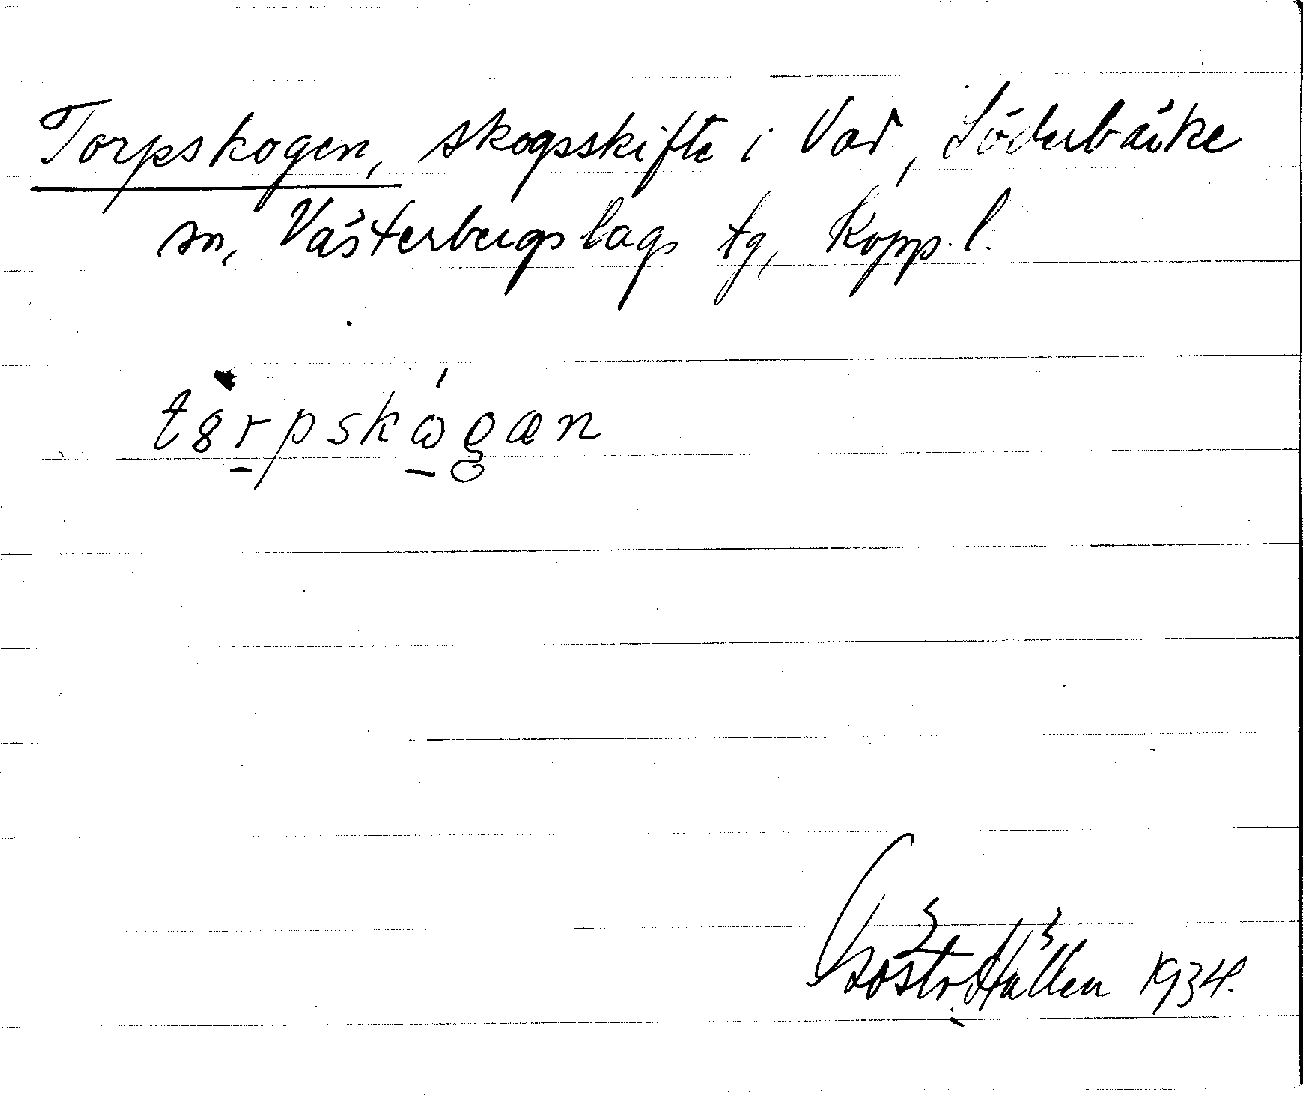 Torpskogen, skogsskifte i Vad, Söderbärke
sn, Västerbergslags tg, Kopp. l.
tȣrpskógæn
1934.